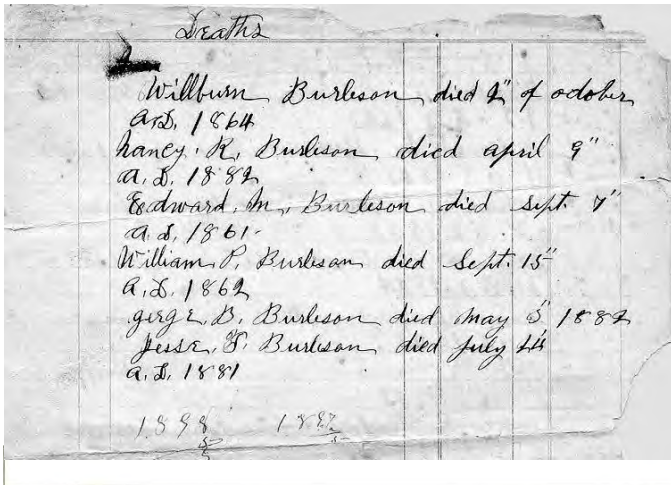 Deaths
Willburn Burleson died 2" of october
A.D. 1864
Nancy. K, Burleson died april 9"
A.D. 1882
Edward. M, Burleson died sept. 7"
A.D. 1861-
William P, Burleson died Sept. 15"
A.D. 1862
gerge. B, Burleson died May 5" 1882
Jesse. F. Burleson died july
A.D. 1881
1898